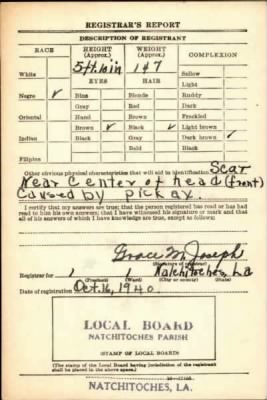 REGISTRAR'S REPORT
DESCRIPTION OF REGISTRANT
RACE HEIGHT (Approx.) WEIGHT (Approx.) COMPLEXION
White 5 ft. 10 in 147 Sallow
EYES HAIR Light
Negro ✓ Blue Blonde Ruddy
Gray Red Dark
Oriental Hazel Brown Freckled
Brown ✓ Black ✓ Light brown
Indian Black Gray Dark brown ✓
Bald Black
Filipino
Other obvious physical characteristics that will aid in identification Scar
Near Center of head (front)
Caused by pick ax.
I certify that my answers are true; that the person registered has read or has had
read to him his own answers; that I have witnessed his signature or mark and that
all of his answers of which I have knowledge are true, except as follows:
Grace M. Joseph
(Signature of registrar)
Registrar for 1 1 Natchitoches, La
(Precinct) (Ward) (City or county) (State)
Date of registration Oct. 16, 1940
LOCAL BOARD
NATCHITOCHES PARISH
(STAMP OF LOCAL BOARD)
(The stamp of the Local Board having jurisdiction of the registrant
shall be placed in the above space.)
NATCHITOCHES, LA.